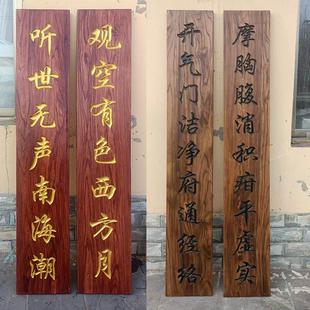 观空有色西方月
听世无声南海潮
摩胸腹消积疳平虚实
开气门洁净府通经络